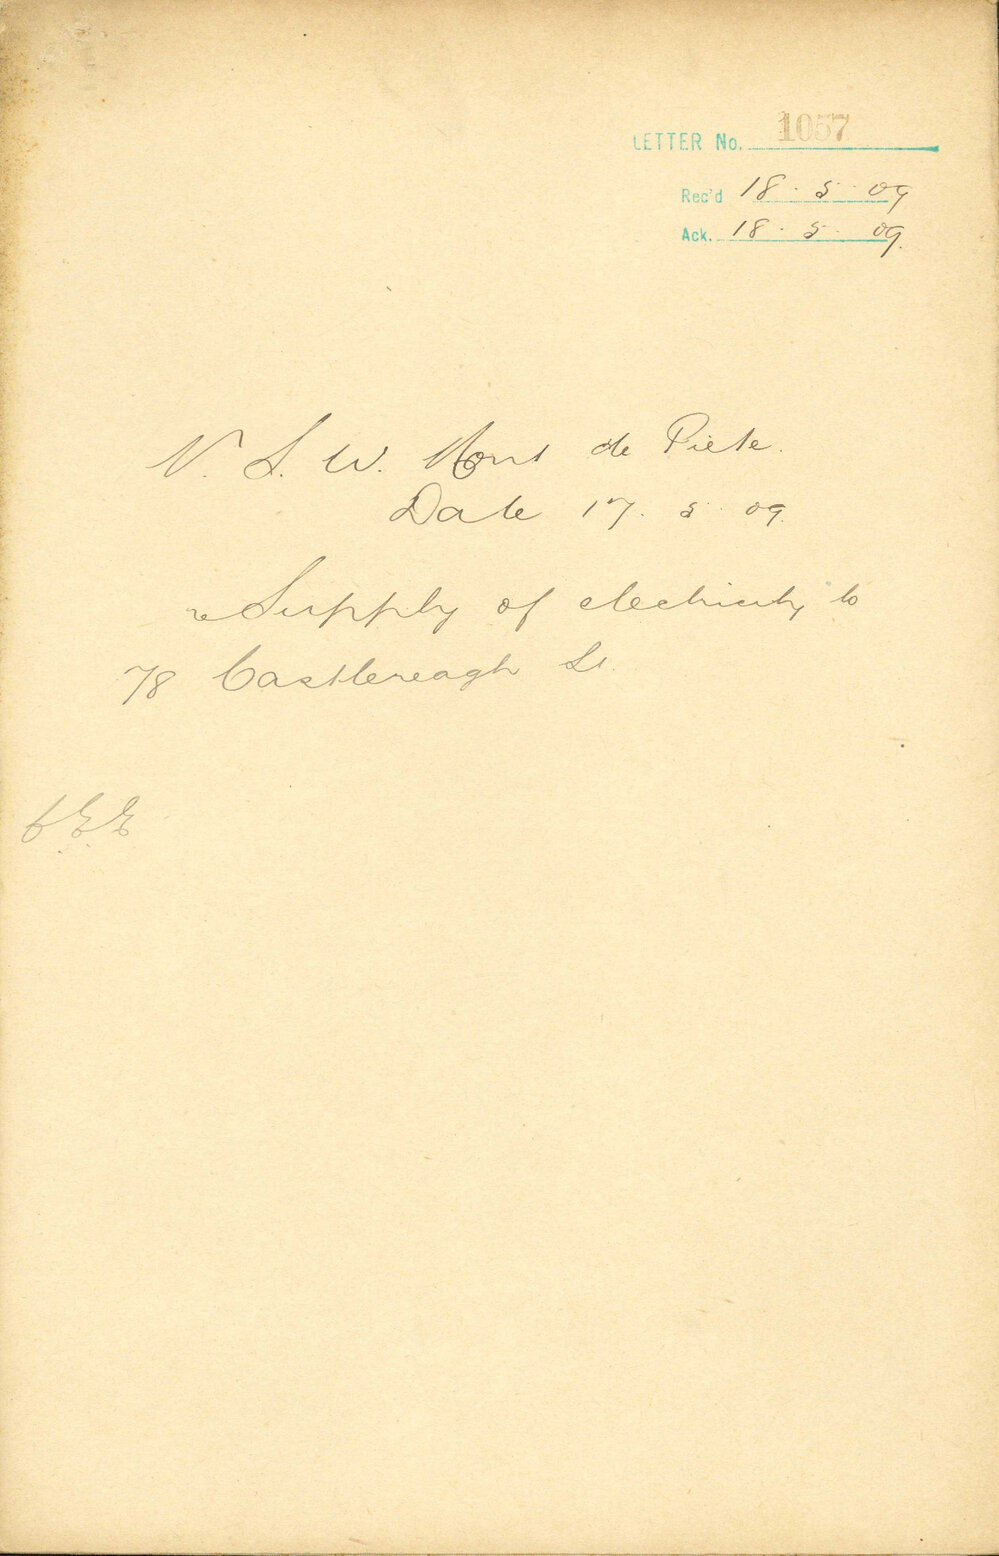 LETTER No. 1057
Rec'd 18 . 5 . 09
Ack. 18 . 5 . 09.
N. S. W. Mont de Piete.
Date 17. 5. 09.
re Supply of electricity to
78 Castlereagh St.